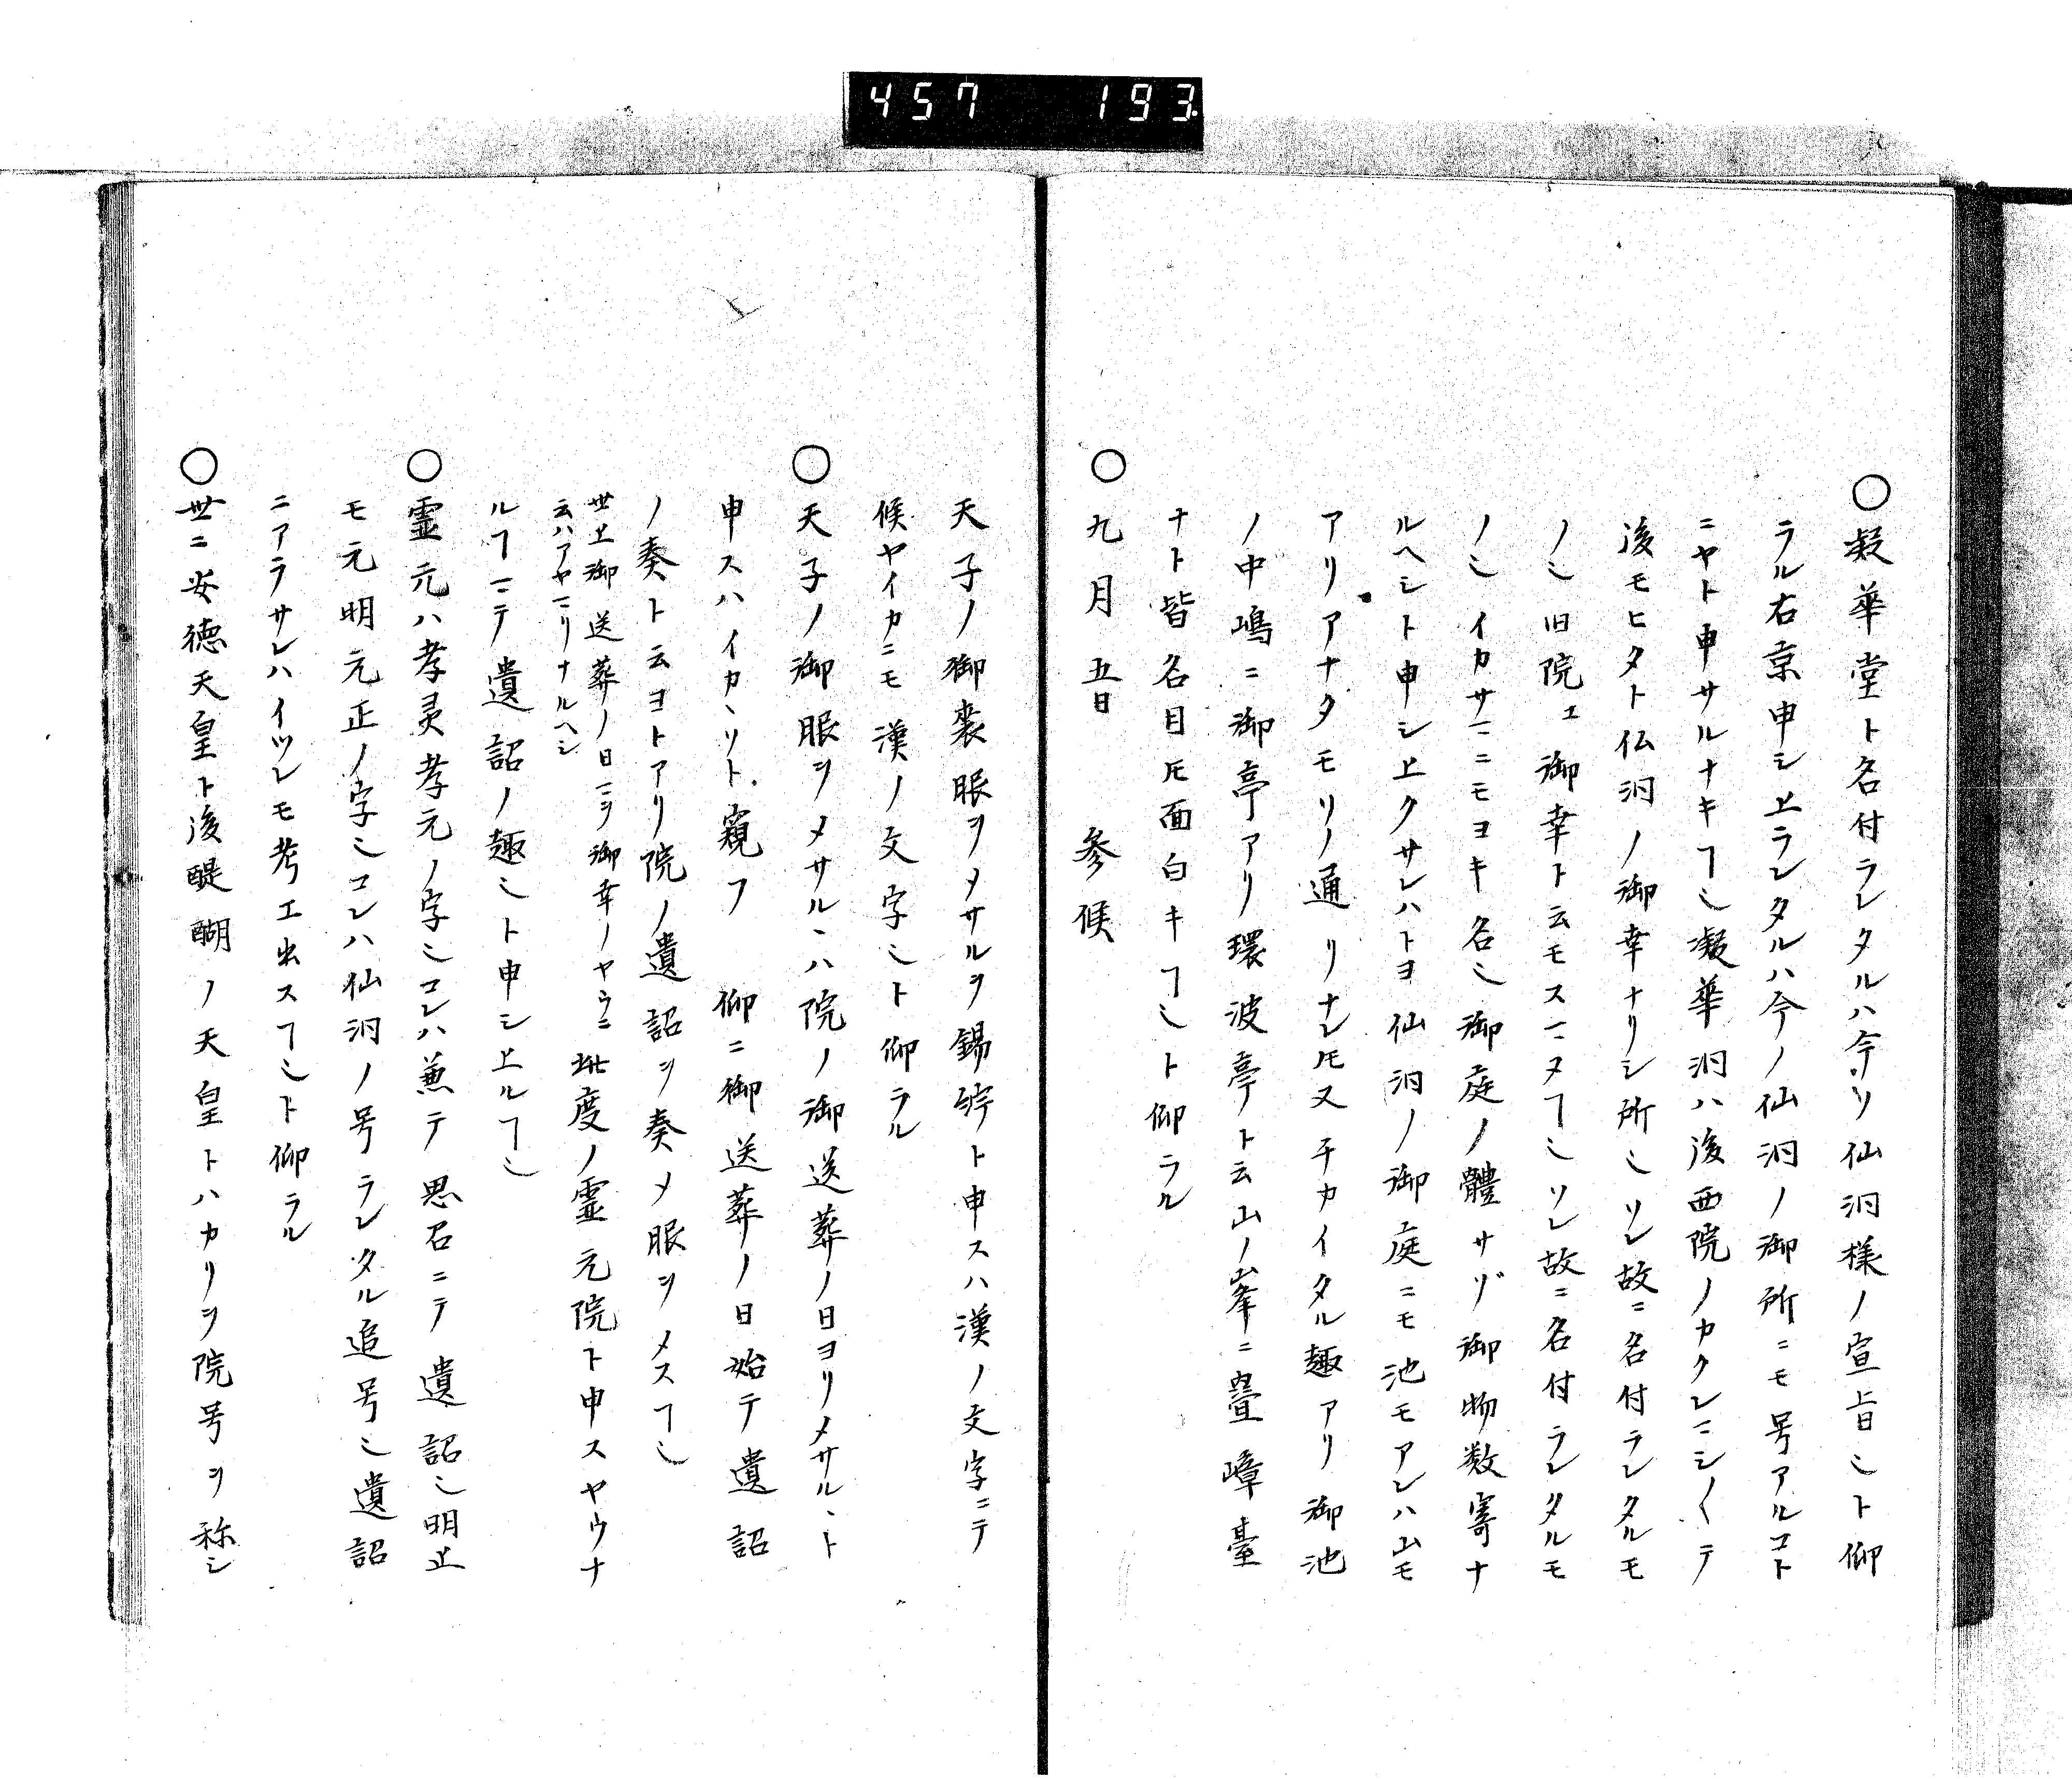 457 193.
○凝華堂ト名付ラレタルハ今ノ仙洞様ノ宣旨ヿ也ト仰
ラル右京申シ上ラレタルハ今ノ仙洞ノ御所ニモ号アルコト
ニヤト申サルナキヿ也凝華洞ハ後西院ノカクレマシ〱テ
後モヒタト仏洞ノ御幸ナリシ所也ソレ故ニ名付ラレタルモ
ノ也旧院ェ御幸ト云モスマヌヿ也ソレ故ニ名付ラレタルモ
ノ也イカサマニモヨキ名也御庭ノ體サゾ御物数寄ナ
ルヘシト申シ上クサレハトヨ仙洞ノ御庭ニモ池モアレハ山モ
アリアナタモソノ通リナレ𪜈又チカイタル趣アリ御池
ノ中嶋ニ御亭アリ環波亭ト云山ノ峯ニ畳嶂臺
ナト皆名目𪜈面白キヿ也ト仰ラル
○九月五日 参候
天子ノ御喪服ヲメサルヲ錫紵ト申スハ漢ノ文字ニテ
候ヤイカニモ漢ノ文字也ト仰ラル
○天子ノ御服ヲメサルヽハ院ノ御送葬ノ日ヨリメサルヽト
申スハイカヽリト窺フ 仰ニ御送葬ノ日始テ遺詔
ノ奏ト云ヨトアリ院ノ遺詔ヲ奏メ服ヲメスヿ也
世上御送葬ノ日マヲ御幸ノヤウニ
云ハアヤマリナルヘシ
此度ノ霊元院ト申スヤウナ
ルヿマテ遺詔ノ趣也ト申シ上ルヿ也
○霊元ハ孝灵孝元ノ字也コレハ兼テ思召ニテ遺詔也明正
モ元明元正ノ字也コレハ仙洞ノ号ラレタル追号也遺詔
ニアラサレハイツレモ考エ出スヿ也ト仰ラル
○世ニ安徳天皇ト後醍醐ノ天皇トハカリヲ院号ヲ称シ